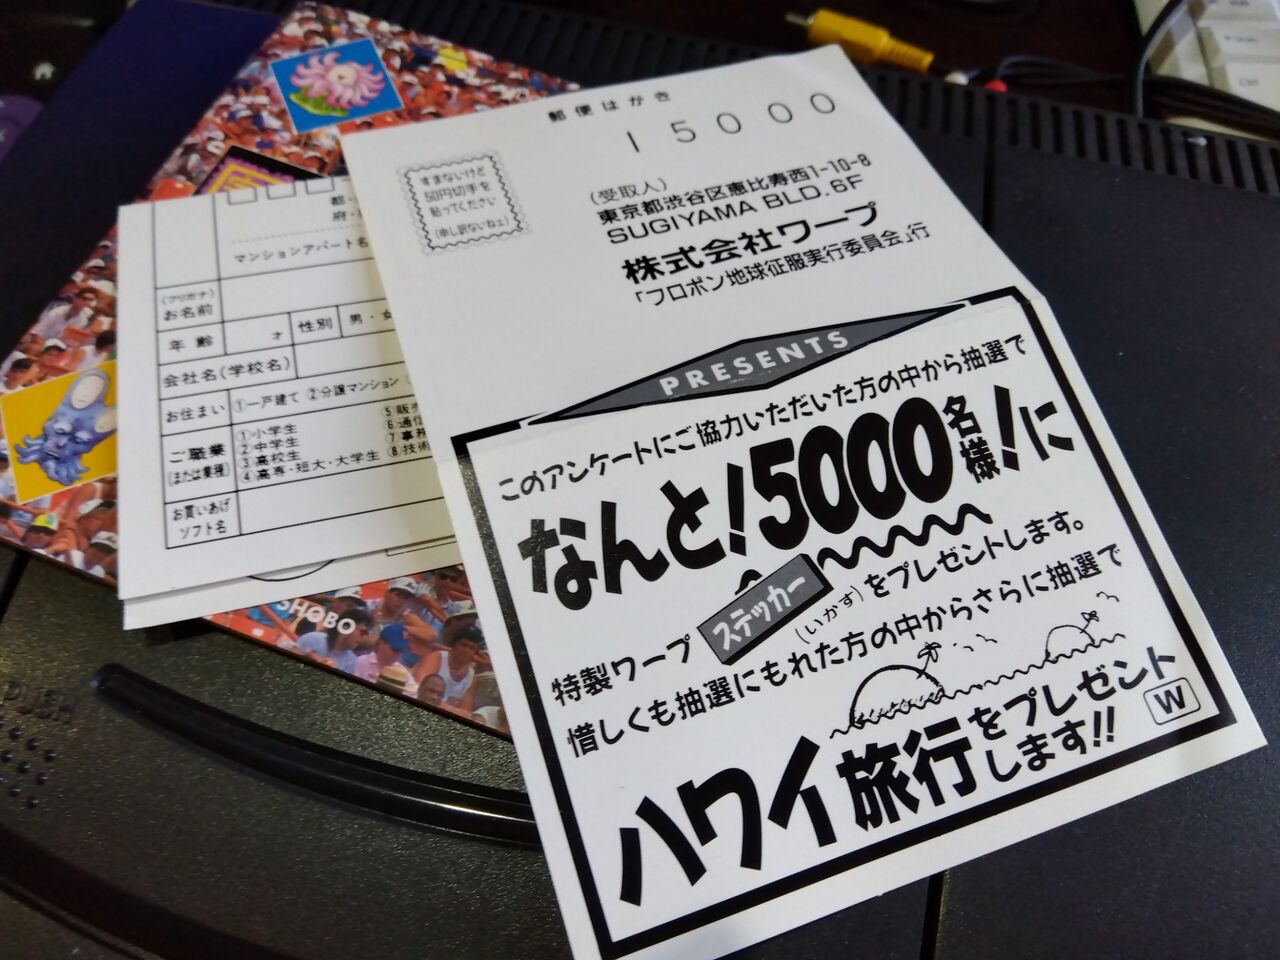 郵便はがき
15000
すまないけど
50円切手を
貼ってください
(申し訳ないねェ)
(受取人)
東京都渋谷区恵比寿西1-10-8
SUGIYAMA BLD. 6F
株式会社ワープ
「フロポン地球征服実行委員会」行
PRESENTS
このアンケートにご協力いただいた方の中から抽選で
なんと!5000名様!に
特製ワープステッカー(いかす)をプレゼントします。
惜しくも抽選にもれた方の中からさらに抽選で
ハワイ旅行をプレゼントします!!
W
都・
府・
マンションアパート名
(フリガナ)
お名前
年齢 才 性別 男・女
会社名(学校名)
お住まい ①一戸建て ②分譲マンション
ご職業
(または業種)
①小学生
②中学生
③高校生
④高専・短大・大学生
⑤販売
⑥通信
⑦事務
⑧技術
お買いあげ
ソフト名
SHOBO
PUSH
Ctrl